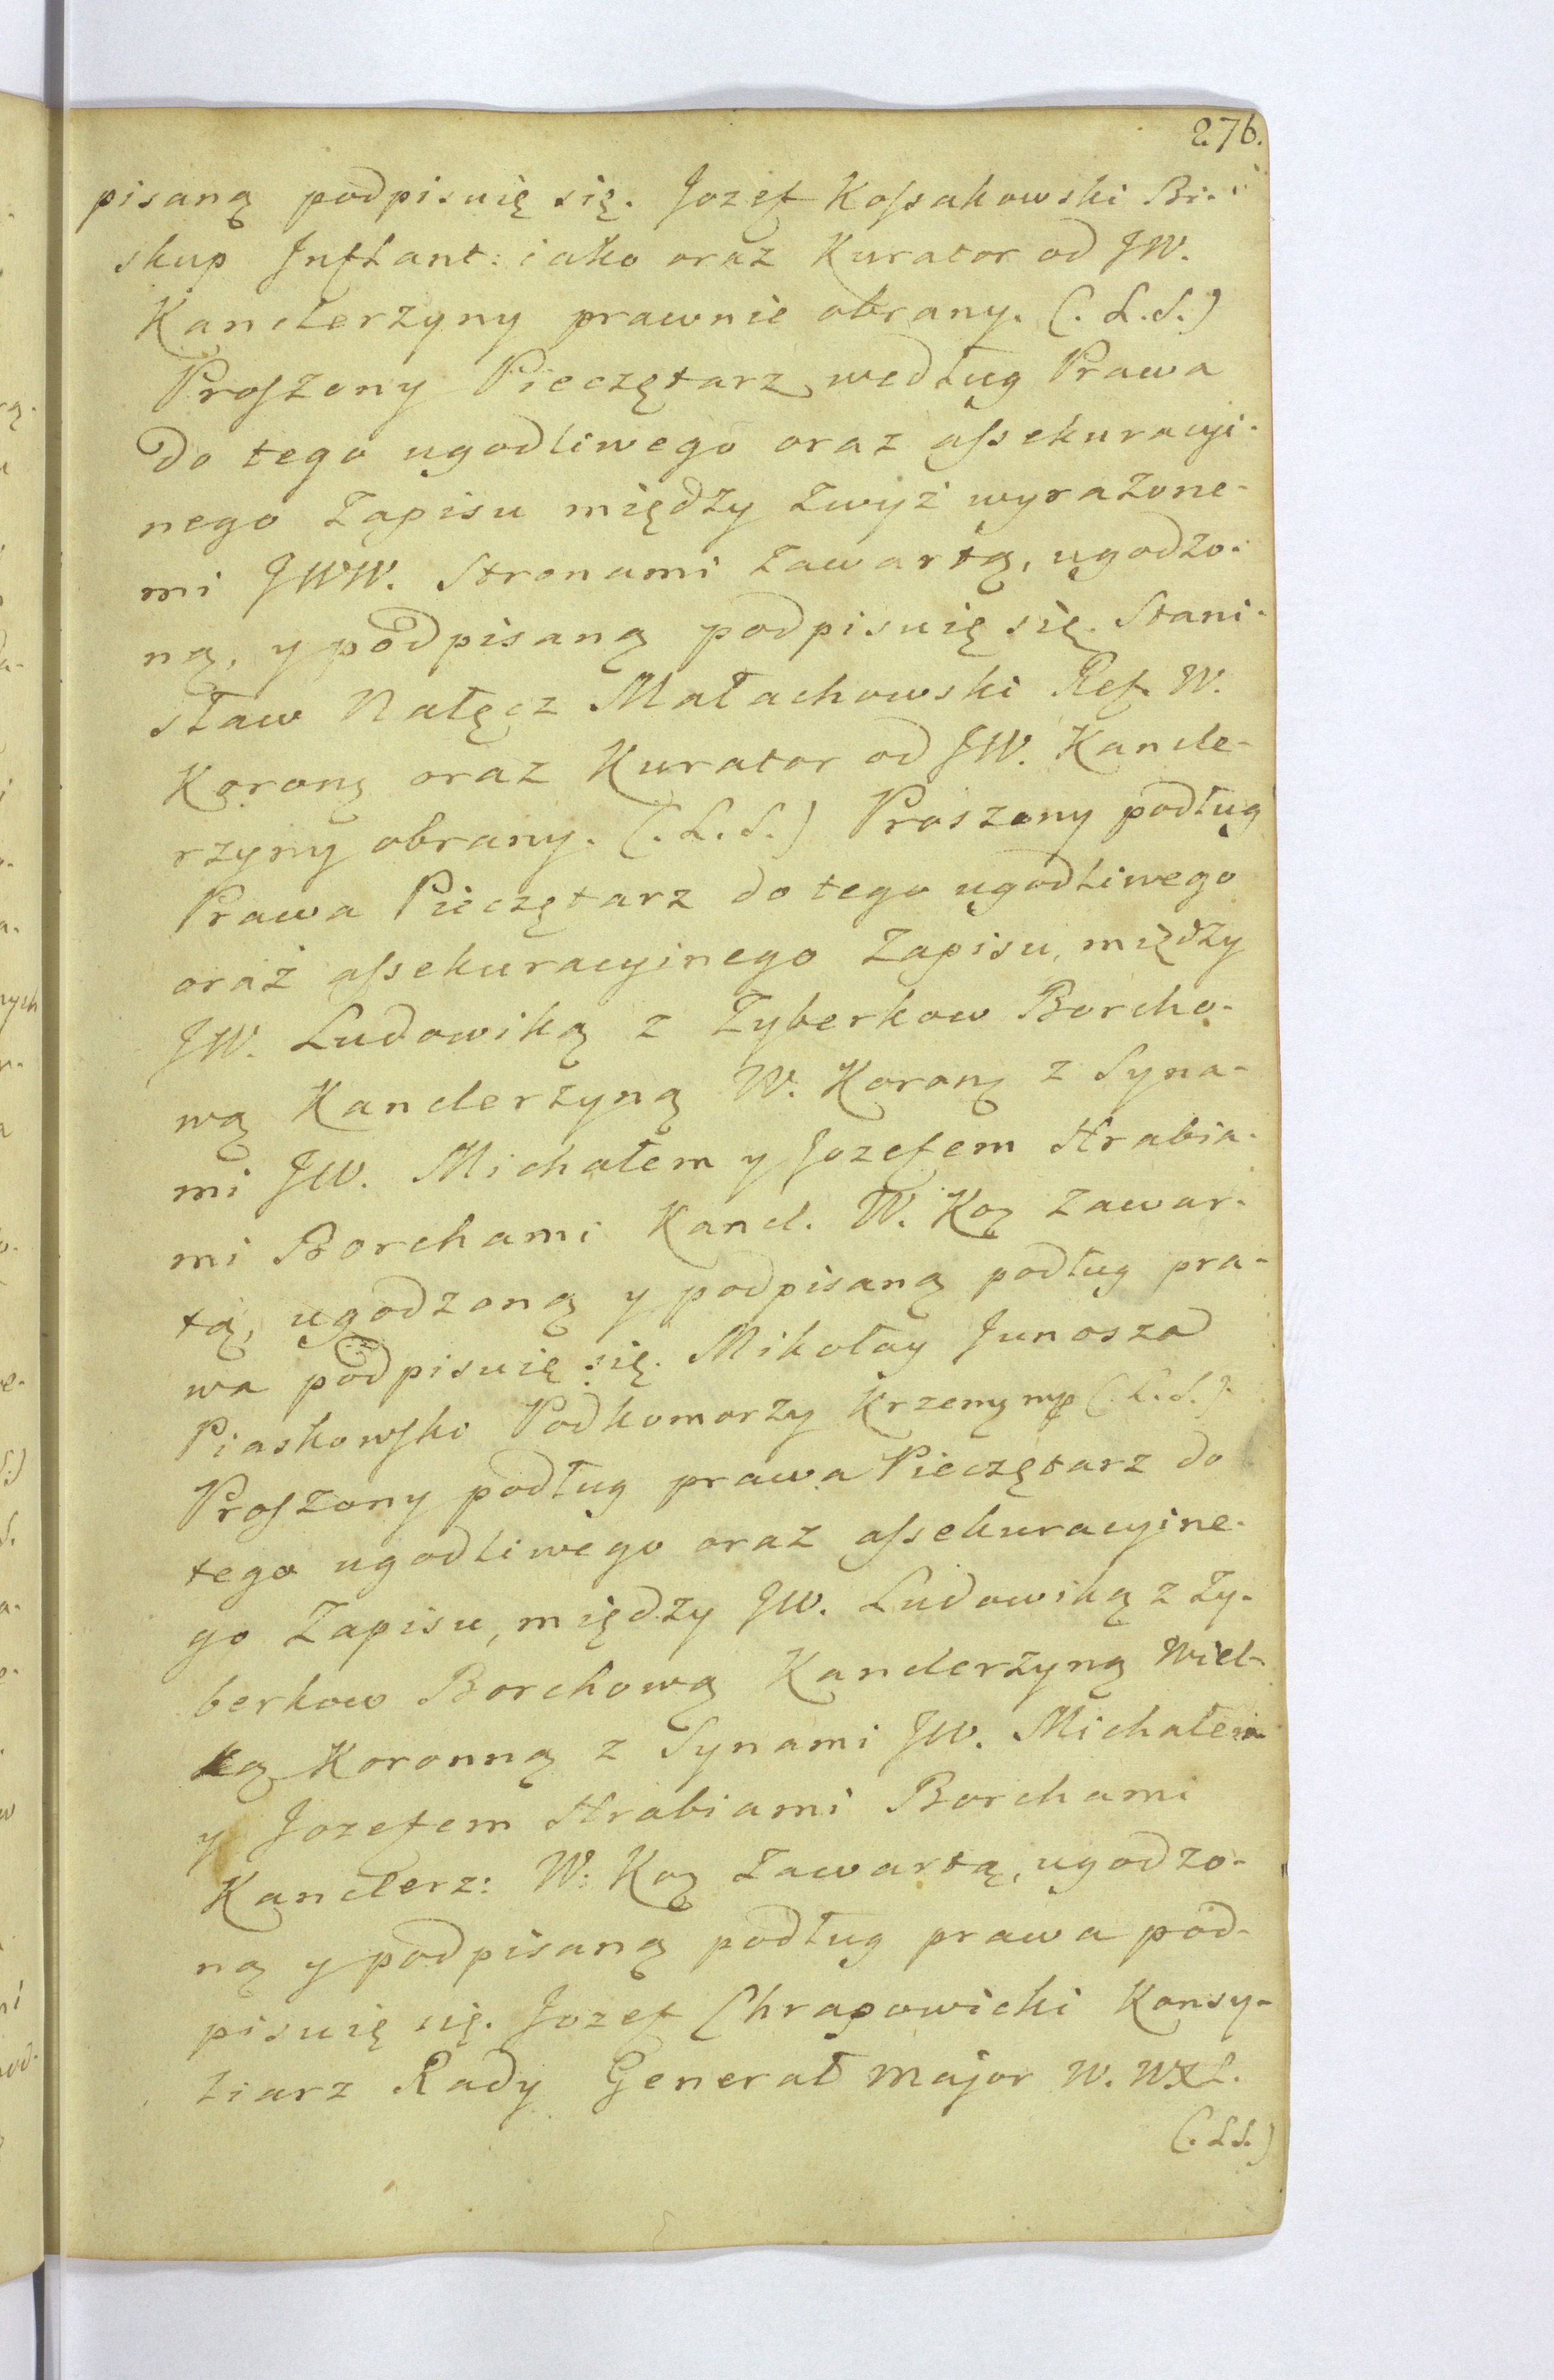 276.
pisaną podpisuię się. Jozef Kossakowski Bi-
skup Inflant: iako oraz Kurator od JW.
Kanclerzyny prawnie obrany. (. L. S.)
Proszony Pieczętarz według Prawa
do tego ugodliwego oraz assekuracyi-
nego Zapisu między zwyż wyrażone-
mi JWW. Stronami zawartą, ugodzo-
ną, y podpisaną podpisuię się. Stani-
sław Nałęcz Małachowski Ref. W.
Koroną oraz Kurator od JW. Kancle-
rzyny obrany. (. L. S.) Proszony podług
Prawa Pieczętarz do tego ugodliwego
oraz assekuracyinego Zapisu, między
JW. Ludowiką z Zyberkow Borcho-
wą Kanclerzyną W. Koroną z Syna-
mi JW. Michałem y Jozefem Hrabia-
mi Borchami Kancl. W. Koą zawar-
tą, ugodzoną y podpisaną podług pra-
wa podpisuię się. Mikołay Junosza
Piaskowski Podkomorzy Krzemą mp (. L. S.)
Proszony podług prawa Pieczętarz do
tego ugodliwego oraz assekuracyine-
go Zapisu, między JW. Ludowiką z Zy-
berkow Borchową Kanclerzyną Wiel-
ką Koronną z Synami JW. Michałem
y Jozefem Hrabiami Borchami
Kanclerz: W: Koą zawartą, ugodzo-
ną y podpisaną podług prawa pod-
pisuię się. Jozef Chrapowicki Konsy-
liarz Rady Generał Major W. WXL.
(. LS.)